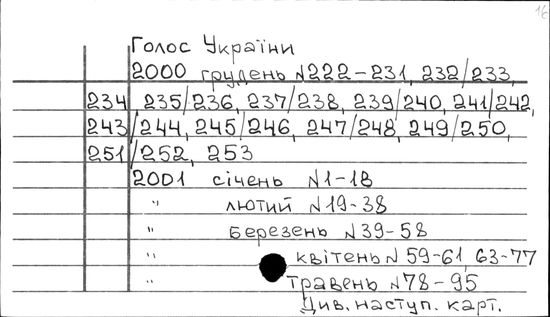 16
Голос України
2000 грудень №222-231, 232/233,
234, 235/236, 237/238, 239/240, 241/242,
243/244, 245/246, 247/248, 249/250,
251/252, 253
2001 січень №1-18
" лютий №19-38
" березень №39-58
" квітень №59-61, 63-77
" травень №78-95
Див. наступ. карт.